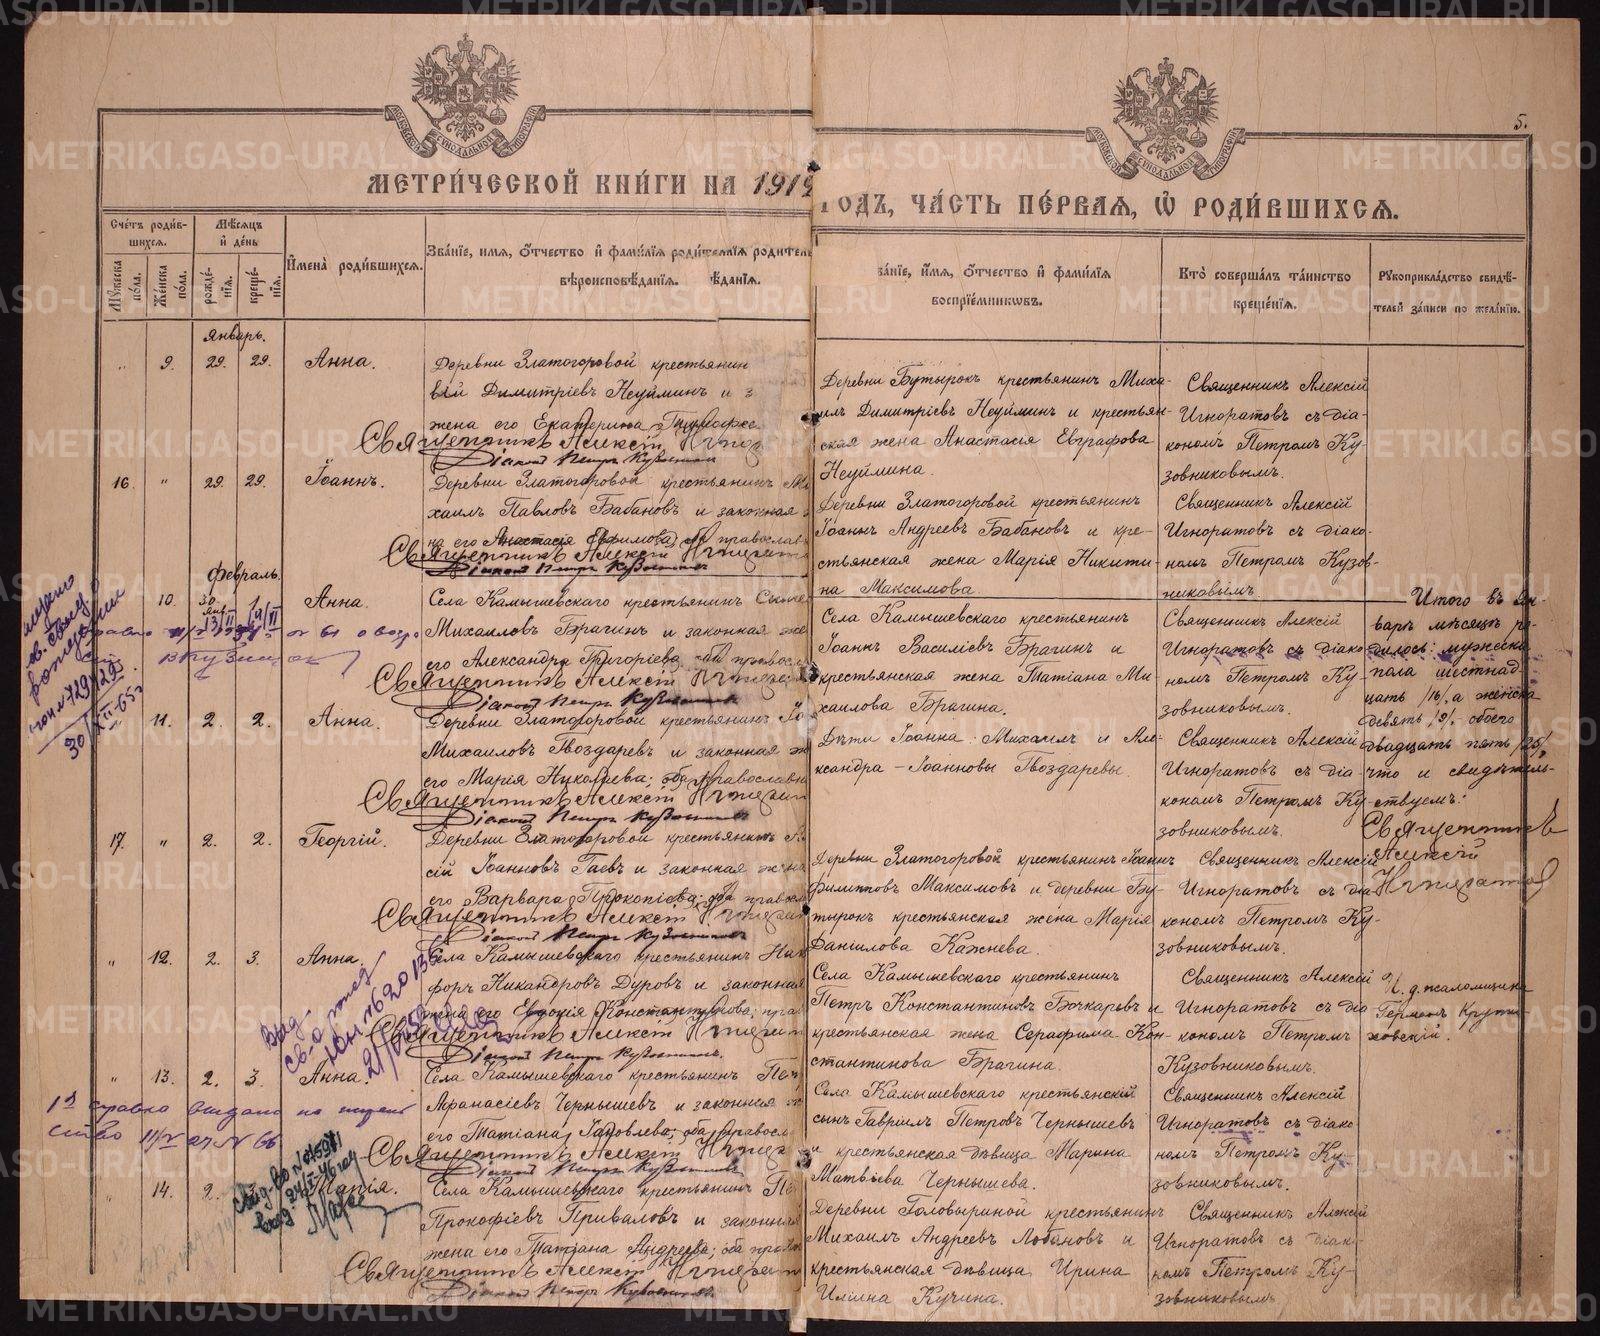 МЕТРИ́ЧЕСКОЙ КНИ́ГИ НА 1912
ГОДЪ, ЧА́СТЬ ПЕ́РВАЯ, Ѡ РОДИ́ВШИХСЯ.
5.
Сче́тъ роди́в-
шихся.
Мꙋ́жеска по́ла.
Же́нска по́ла.
Мѣ́сяцъ
и де́нь
рожде́-
нїя.
креще́-
нїя.
И́мена роди́вшихся.
Зва́нїе, имя, ѻ҆́тчество и҆ фами́лїя роди́телей
вѣроисповѣ́данїя.
зва́нїе, и́мя, ѻ҆́тчество и҆ фами́лїя
воспрїе́мниковъ.
Кто̀ соверша́лъ та́инство
креще́нїя.
Рꙋкоприкла́дство свидѣ́-
телей за́писи по жела́нїю.
Январь.
9. 29. 29. Анна.
Деревни Златогоровой крестьянин
Димитріевъ Неуйминъ и з
жена его Екатерина
Священникъ Алексій
Діаконъ Петръ Кузовниковъ
Деревни Бутырокъ крестьянинъ Миха-
илъ Димитріевъ Неуйминъ и крестьян-
ская жена Анастасія Евграфова
Неуймина.
Священникъ Алексій
Игноратовъ съ діа-
кономъ Петромъ Ку-
зовниковымъ.
16. " 29. 29. Іоаннъ.
Деревни Златогоровой крестьянинъ Ми
хаилъ Павловъ Бабановъ и законная
на его Анастасія Евфимова; оба православ
Священникъ Алексій
Діаконъ Петръ Кузовниковъ
Деревни Златогоровой крестьянинъ
Іоаннъ Андреевъ Бабановъ и кре-
стьянская жена Марія Никити-
на Максимова
Священникъ Алексій
Игноратовъ съ діако-
номъ Петромъ Кузов-
никовымъ.
Февраль.
10. 30 янв. 1. Анна.
Села Камышевскаго крестьянинъ
Михаиловъ Брагинъ и законная же
его Александра Григоріева; оба правосл
Священникъ Алексій
Діаконъ Петръ Кузовниковъ
Села Камышевскаго крестьянинъ
Іоаннъ Василіевъ Брагинъ и
крестьянская жена Татіана Ми-
хаилова Брагина.
Священникъ Алексій
Игноратовъ съ діако-
номъ Петромъ Ку-
зовниковымъ.
Итого въ Ян-
варѣ мѣсяцѣ ро-
дилось: мужеска
пола шестнад-
цать /16/, а женска
девять /9/, обоего
двадцать пять /25/,
что и свидѣтель-
ствуемъ:
Священникъ
Алексій
Игноратовъ
И. д. псаломщика
Германъ
11. 2. 2. Анна.
Деревни Златогоровой крестьянинъ Іо
Михаиловъ Гвоздаревъ и законная ж
его Марія Николаева; оба православн
Священникъ Алексій
Діаконъ Петръ Кузовниковъ
Дѣти Іоанна: Михаилъ и Але-
ксандра – Іоанновы Гвоздаревы.
Священникъ Алексій
Игноратовъ съ діа-
кономъ Петромъ Ку-
зовниковымъ.
17. " 2. 2. Георгій.
Деревни Златогоровой крестьянинъ
сій Іоанновъ Гаевъ и законная жена
его Варвара Прокопіева; оба правосл
Священникъ Алексій
Діаконъ Петръ Кузовниковъ
Деревни Златогоровой крестьянинъ Іоаннъ
Филипповъ Максимовъ и деревни Бу-
тырокъ крестьянская жена Марія
Даніилова Кажнева.
Священникъ Алексій
Игноратовъ съ діа
кономъ Петромъ Ку-
зовниковымъ.
" 12. 2. 3. Анна.
Села Камышевскаго крестьянинъ Ник
форъ Никандровъ Дуровъ и законная
жена его Евдокія Константинова; пра
Священникъ Алексій
Діаконъ Петръ Кузовниковъ.
Села Камышевскаго крестьянинъ
Петръ Константиновъ Бочкаревъ и
крестьянская жена Серафима Кон-
стантинова Брагина.
Священникъ Алексій
Игноратовъ съ діа
кономъ Петромъ
Кузовниковымъ.
" 13. 2. 3. Анна.
Села Камышевскаго крестьянинъ Пет
Афанасіевъ Чернышевъ и законная
его Татіана Іаковлева; оба правосл
Священникъ Алексій
Діаконъ Петръ Кузовниковъ
Села Камышевскаго крестьянскій
сынъ Гавріилъ Петровъ Чернышевъ
и крестьянская дѣвица Марина
Матвіева Чернышева.
Священникъ Алексій
Игноратовъ съ діако-
номъ Петромъ Ку-
зовниковымъ.
14. 2. Марія.
Села Камышевскаго крестьянинъ
Прокофіевъ Приваловъ и законная
жена его Татіана Андреева; оба пра
Священникъ Алексій
Діаконъ Петръ Кузовниковъ.
Деревни Головыриной крестьянинъ
Михаилъ Андреевъ Лобановъ и
крестьянская дѣвица Ирина
Иліина Кучина.
Священникъ Алексій
Игноратовъ съ діако-
номъ Петромъ Ку-
зовниковымъ
METRIKI.GASO-URAL.RU